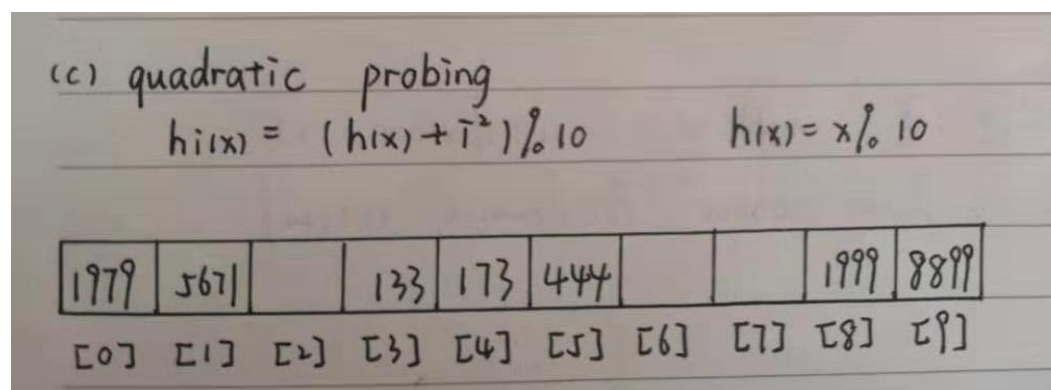 (c) quadratic probing
hi(x) = (h(x) + i²) % 10 h(x) = x % 10
1979 5671 133 173 444 1999 8899
[0] [1] [2] [3] [4] [5] [6] [7] [8] [9]